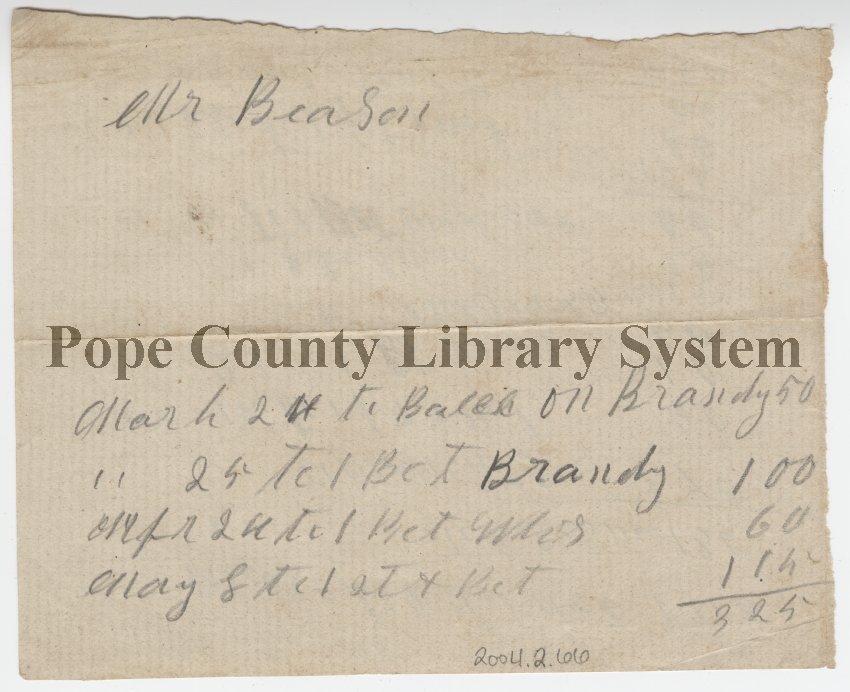 Mr Beason
Pope County Library System
Marh 24 to Balce on Brandy 50
" 25 to 1 Bot Brandy 100
Apr 24 to 1 Bot 60
May 8 to 1 qt & Bot 115
325
2004.2.66